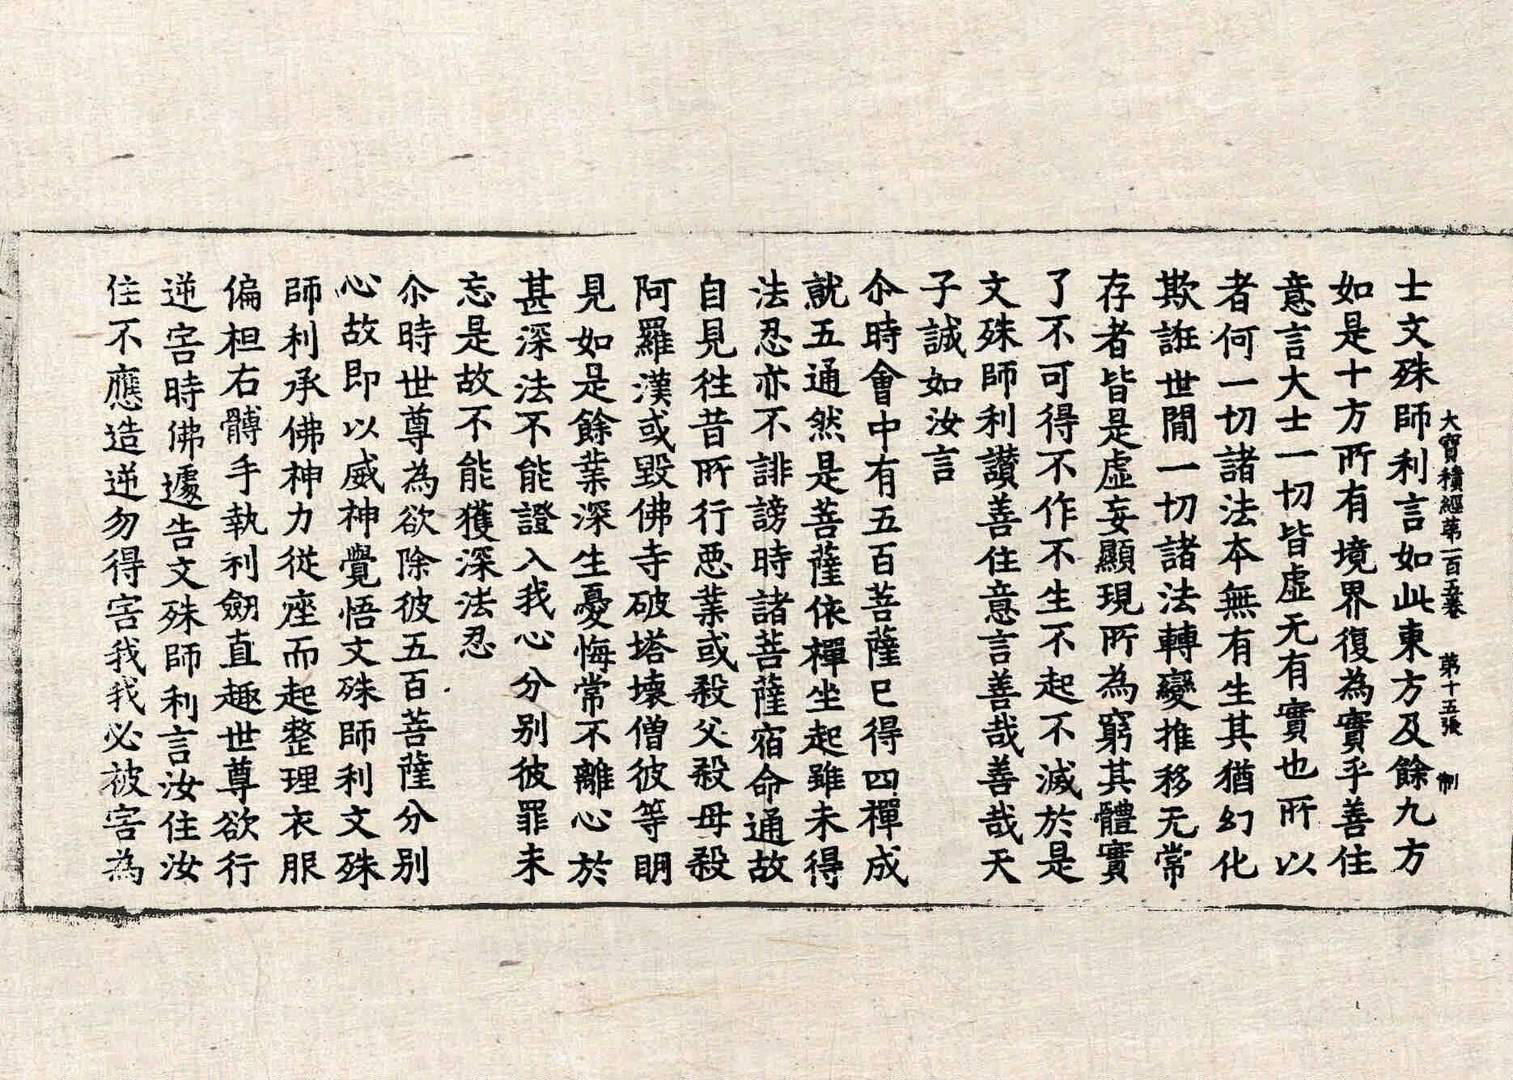 大寶積經第一百五卷 第十五張 制
士文殊師利言如此東方及餘九方
如是十方所有境界復為實乎善住
意言大士一切皆虛无有實也所以
者何一切諸法本無有生其猶幻化
欺誑世間一切諸法轉變推移无常
存者皆是虛妄顯現所為窮其體實
了不可得不作不生不起不滅於是
文殊師利讚善住意言善哉善哉天
子誠如汝言
尒時會中有五百菩薩已得四禪成
就五通然是菩薩依禪坐起雖未得
法忍亦不誹謗時諸菩薩宿命通故
自見往昔所行惡業或殺父殺母殺
阿羅漢或毀佛寺破塔壞僧彼等明
見如是餘業深生憂悔常不離心於
甚深法不能證入我心分別彼罪未
忘是故不能獲深法忍
尒時世尊為欲除彼五百菩薩分別
心故即以威神覺悟文殊師利文殊
師利承佛神力從座而起整理衣服
偏袒右髆手執利劒直趣世尊欲行
逆害時佛遽告文殊師利言汝住汝
住不應造逆勿得害我我必被害為